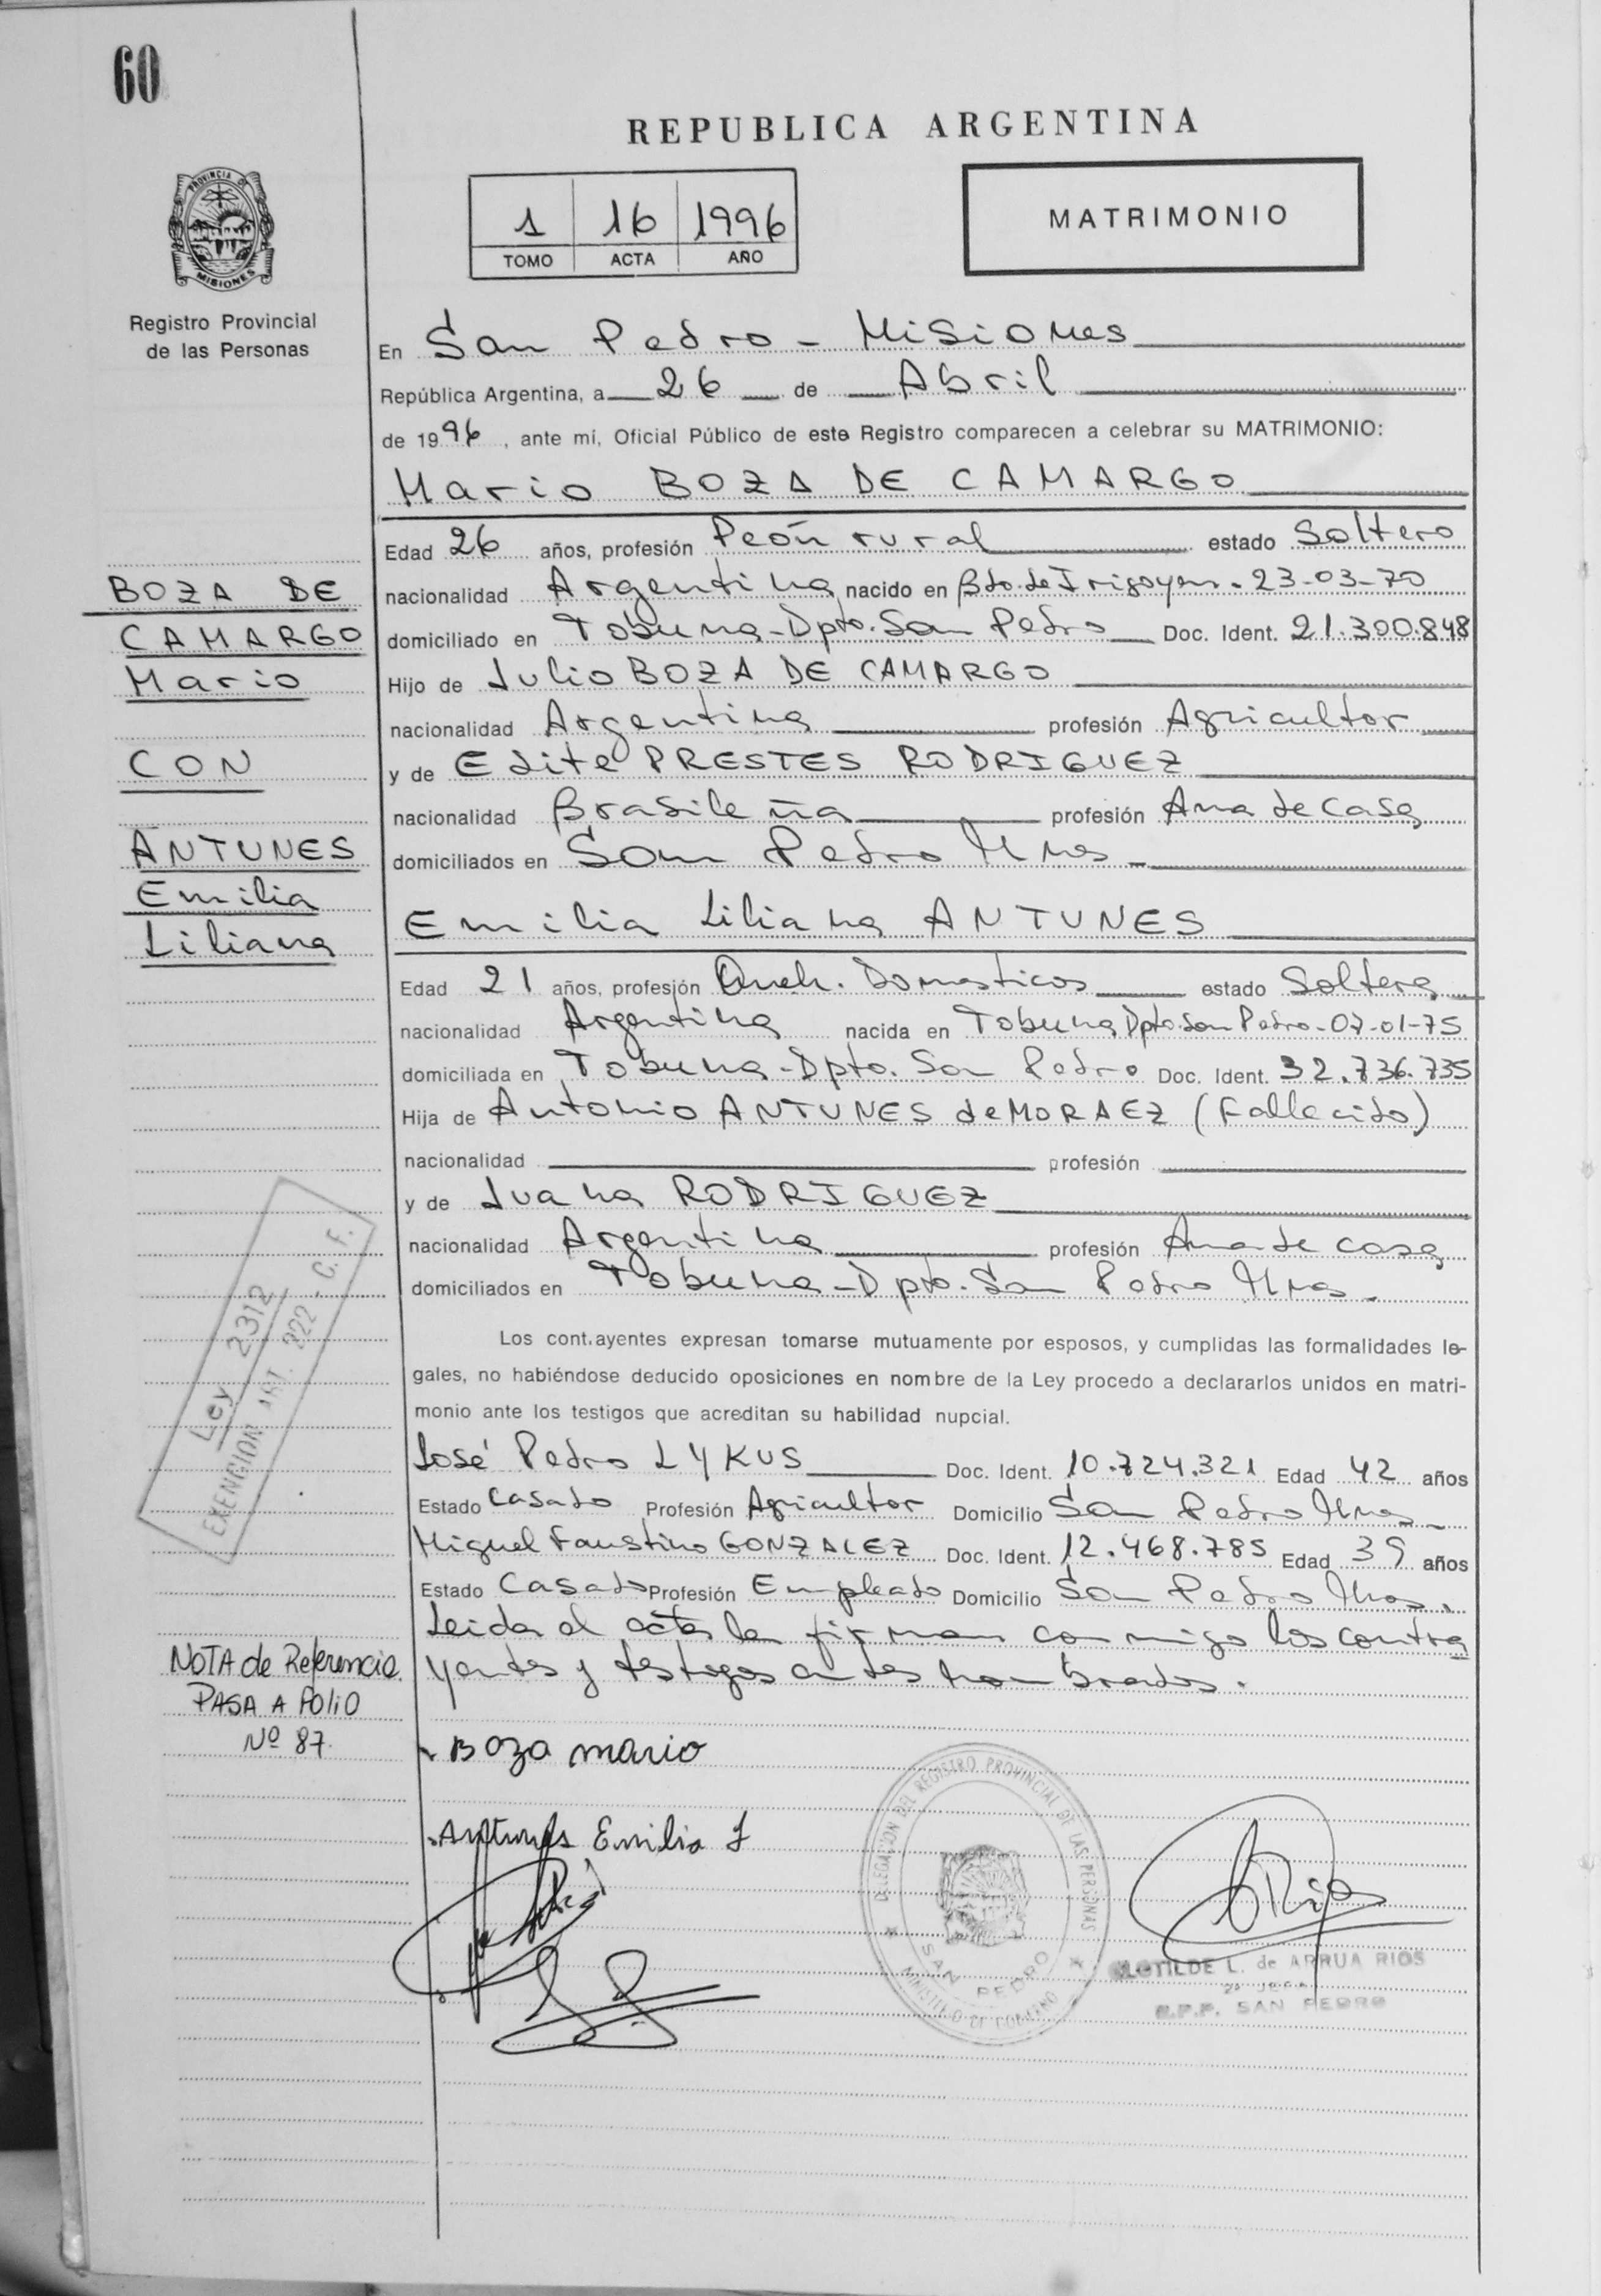 60
REPUBLICA ARGENTINA
1 16 1996
TOMO ACTA AÑO
MATRIMONIO
PROVINCIA DE
MISIONES
Registro Provincial
de las Personas
En San Pedro - Misiones
República Argentina, a 26 de Abril
de 1996, ante mí, Oficial Público de este Registro comparecen a celebrar su MATRIMONIO:
Mario BOZA DE CAMARGO
Edad 26 años, profesión Peón rural estado Soltero
nacionalidad Argentina nacido en Bdo. de Irigoyen - 23-03-70
domiciliado en Tobuna - Dpto. San Pedro Doc. Ident. 21.300.848
Hijo de Julio BOZA DE CAMARGO
nacionalidad Argentina profesión Agricultor
y de Edite PRESTES RODRIGUEZ
nacionalidad Brasileña profesión Ama de Casa
domiciliados en San Pedro Mnes -
BOZA DE
CAMARGO
Mario
CON
ANTUNES
Emilia
Liliana
Emilia Liliana ANTUNES
Edad 21 años, profesión Queh. Domesticos estado Soltera
nacionalidad Argentina nacida en Tobuna Dpto. San Pedro - 07-01-75
domiciliada en Tobuna - Dpto. San Pedro Doc. Ident. 32.736.735
Hija de Antonio ANTUNES de MORAEZ (Fallecido)
nacionalidad profesión
y de Juana RODRIGUEZ
nacionalidad Argentina profesión Ama de casa
domiciliados en Tobuna - Dpto. San Pedro Mnes.
Ley 2312
EXENCION ART. 222 - C. F.
Los cont.ayentes expresan tomarse mutuamente por esposos, y cumplidas las formalidades le-
gales, no habiéndose deducido oposiciones en nombre de la Ley procedo a declararlos unidos en matri-
monio ante los testigos que acreditan su habilidad nupcial.
José Pedro LYKUS Doc. Ident. 10.724.321 Edad 42 años
Estado Casado Profesión Agricultor Domicilio San Pedro Mnes.
Miguel Faustino GONZALEZ Doc. Ident. 12.468.785 Edad 39 años
Estado Casado Profesión Empleado Domicilio San Pedro Mnes.
Leida el acta la firman conmigo los contra
yentes y testigos antes nombrados.
NOTA de Referencia.
PASA A FOLIO
Nº 87.
Boza mario
Antunes Emilia L
DELEGACION DEL REGISTRO PROVINCIAL DE LAS PERSONAS
SAN PEDRO
MINISTERIO DE GOBIERNO
CLOTILDE L. de ARRUA RIOS
2º JEFA
R.P.P. SAN PEDRO